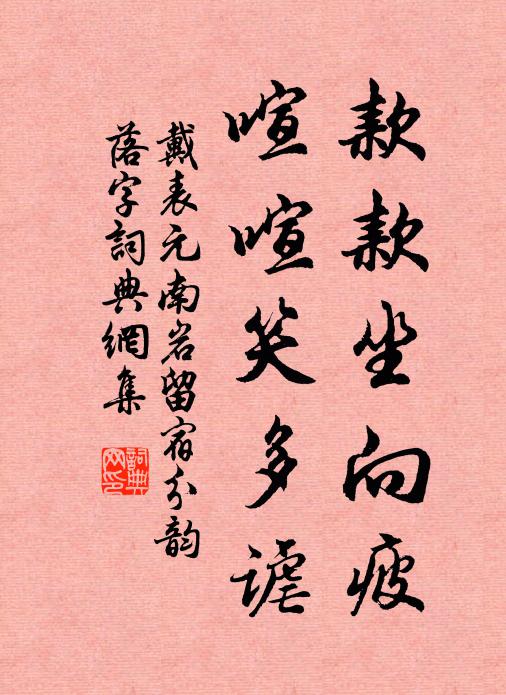 款款坐向疲
喧喧笑多謔
戴表元南岩留宿分韵
落字詞典網集
詞典
网印